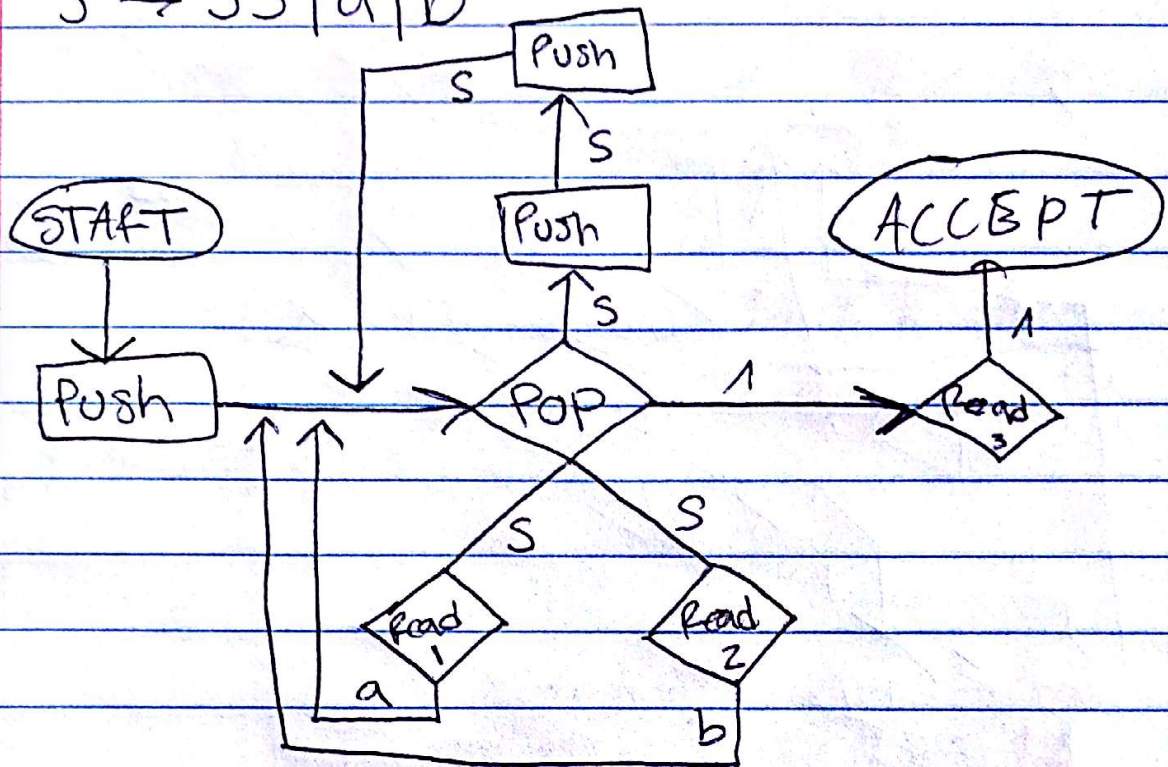 S → SS | a | b
Push
S
S
START
Push
ACCEPT
S
Λ
Push
POP
Λ
Read 3
S
S
Read 1
Read 2
a
b